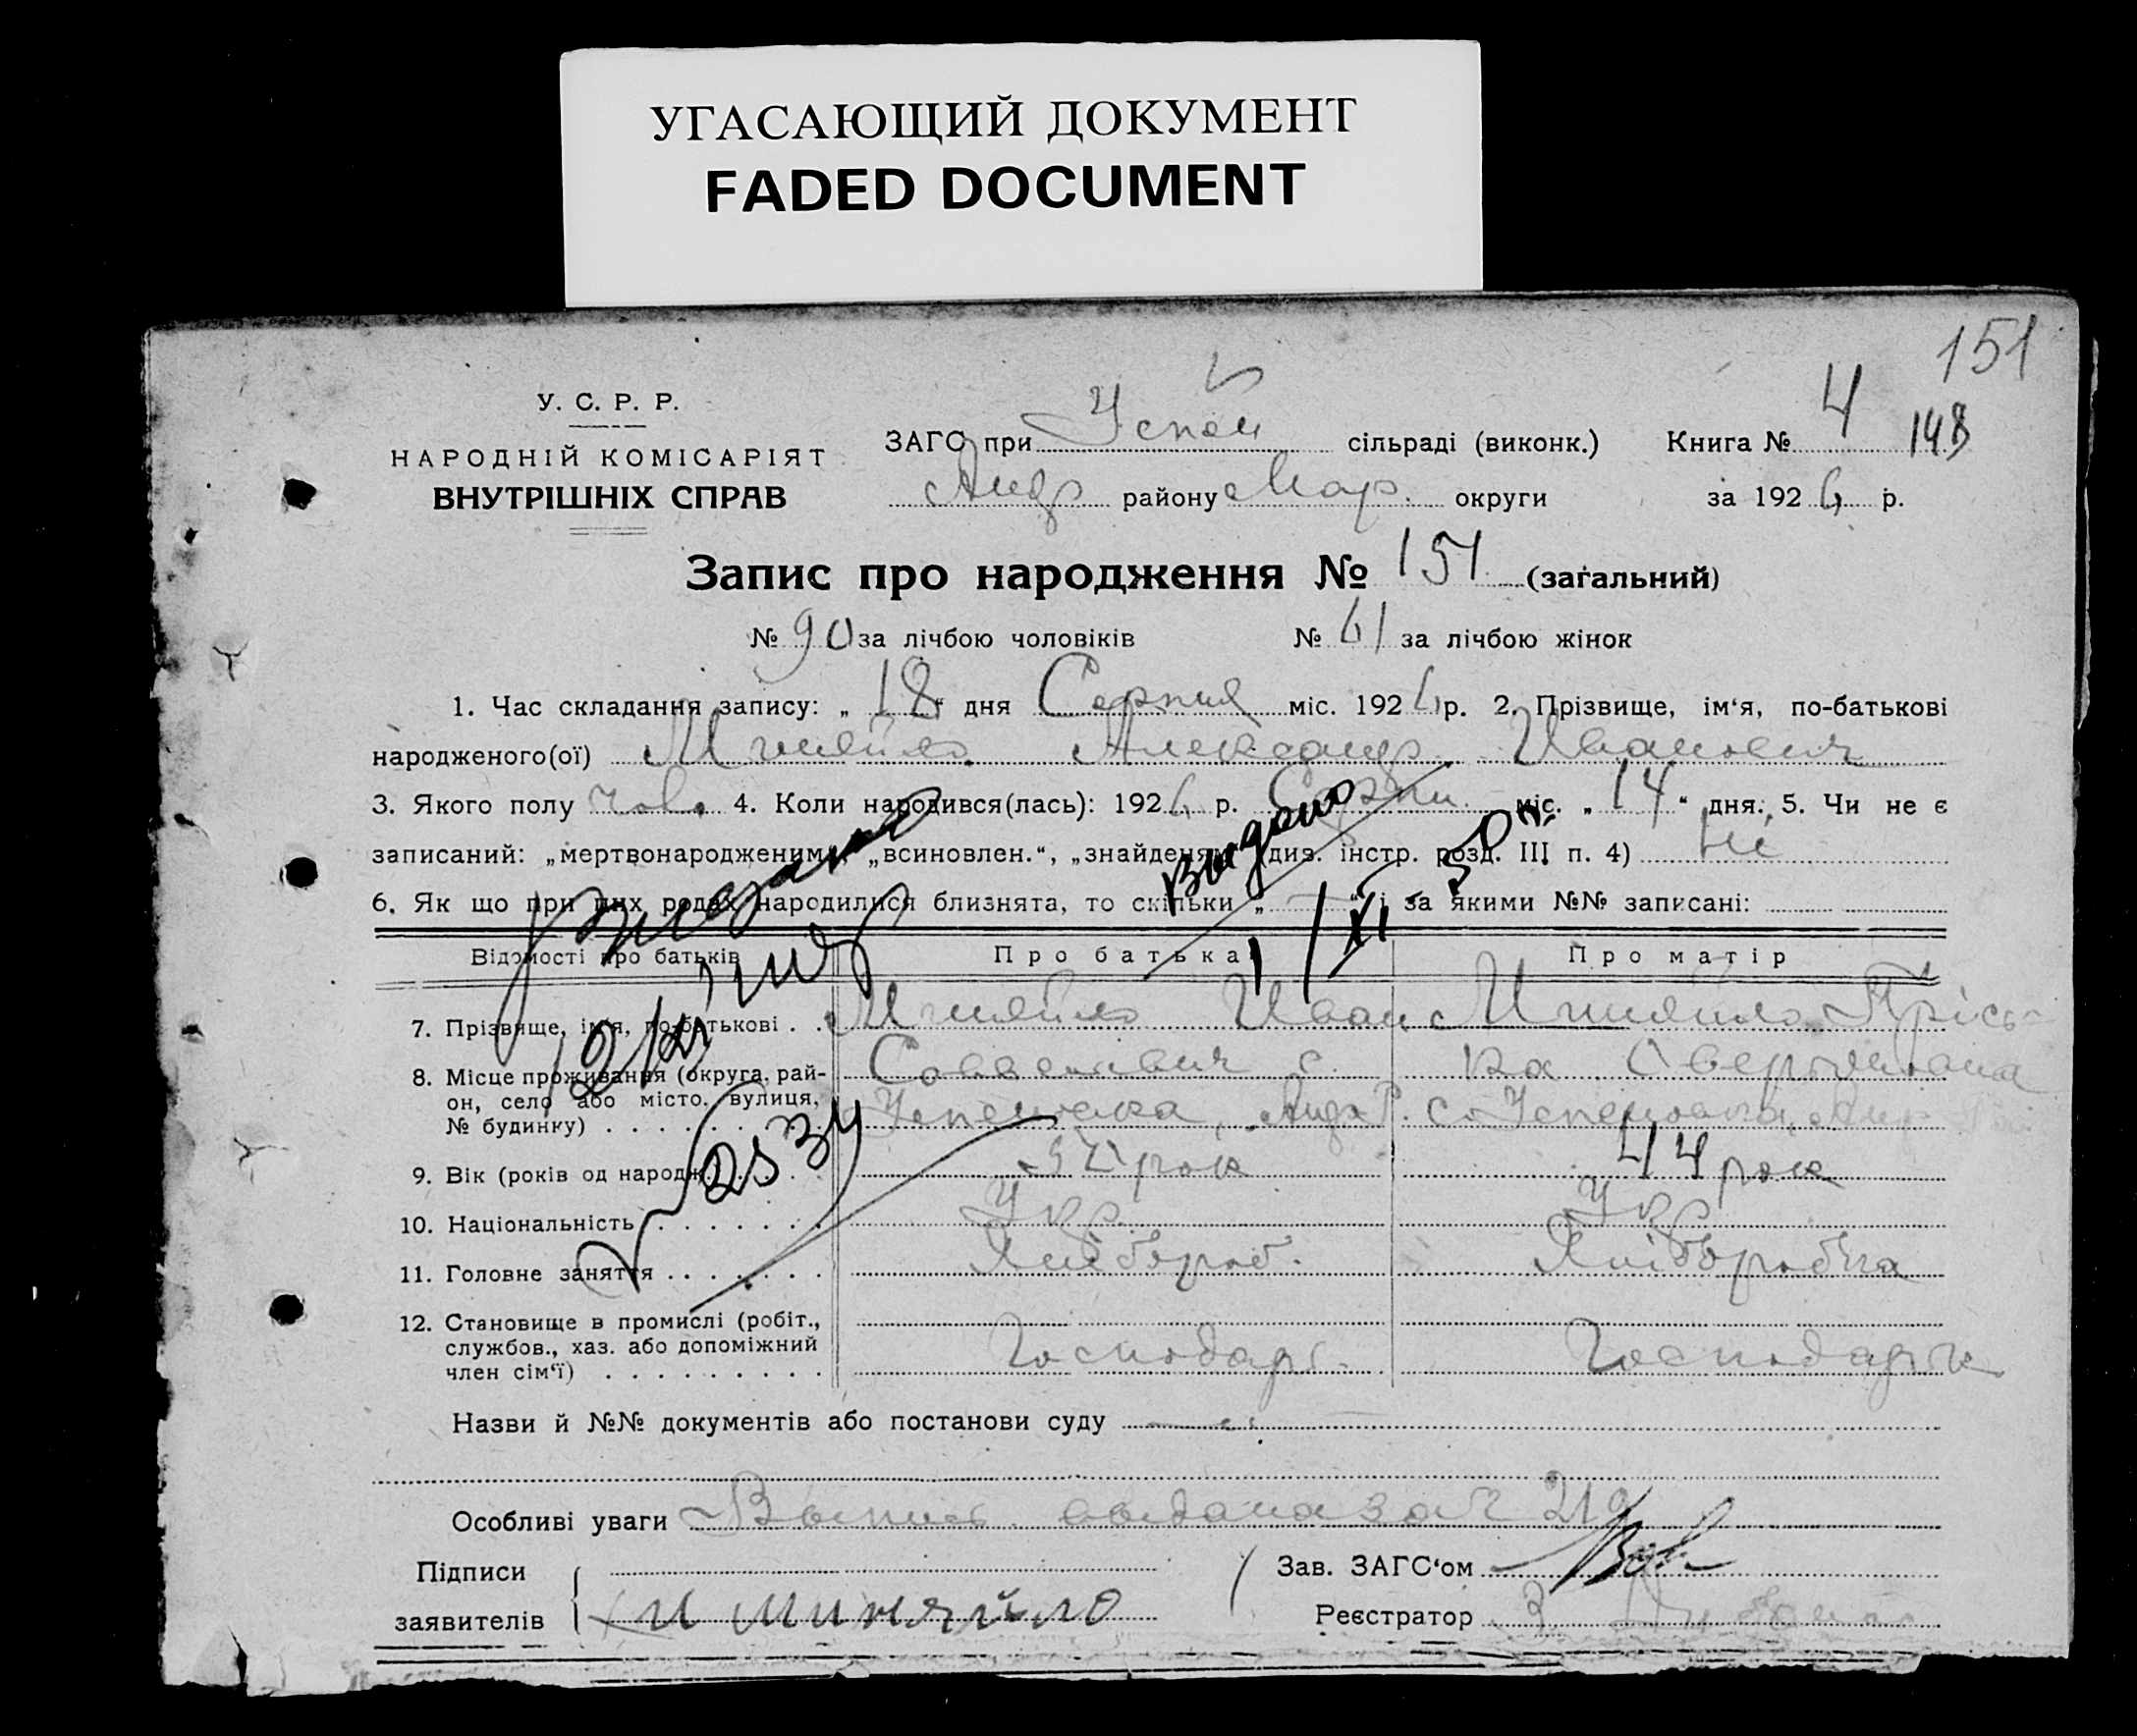 УГАСАЮЩИЙ ДОКУМЕНТ
FADED DOCUMENT
151
У. С. Р. Р.
НАРОДНІЙ КОМІСАРІЯТ
ВНУТРІШНІХ СПРАВ
ЗАГС при Успен сільраді (виконк.) Книга № 4 148
Андр району Мар. округи за 1926 р.
Запис про народження № 151 (загальний)
№ 90 за лічбою чоловіків № 61 за лічбою жінок
1. Час складання запису: „ 18 “ дня Серпня міс. 1926 р. 2. Прізвище, ім‘я, по-батькові
народженого(ої) Миняйло Александр Иванович
3. Якого полу чов. 4. Коли народився(лась): 1926 р. Серпн. міс. „ 14 “ дня. 5. Чи не є
записаний: „мертвонародженим“, „всиновлен.“, „знайденям“ (див. інстр. розд. III п. 4) Ні
6. Як що при цих родах народилися близнята, то скільки „ — “ і за якими №№ записані:
видано
1/XI 50 г.
Відомості про батьків Про батька Про матір
7. Прізвище, ім‘я, по-батькові . . Миняйло Иван Миняйло Прісь-
8. Місце проживання (округа, рай-
он, село або місто, вулиця,
№ будинку) . . . . . .
Савелович с. ка Аверьяновна
Успеновка, Андр Р. с. Успеновка, Андр
2534
9. Вік (років од народж.) . . . рок 44 рок
10. Національність . . . . . . . Укр. Укр
11. Головне заняття . . . . . . . Хлібороб. Хлібробка
12. Становище в промислі (робіт.,
службов., хаз. або допоміжний
член сім‘ї) . . . . . . . . . .
Господарь. Господарка
Назви й №№ документів або постанови суду
Особливі уваги Выпись выдана за № 219
Підписи
заявителів И Миняйло
Зав. ЗАГС‘ом
Реєстратор